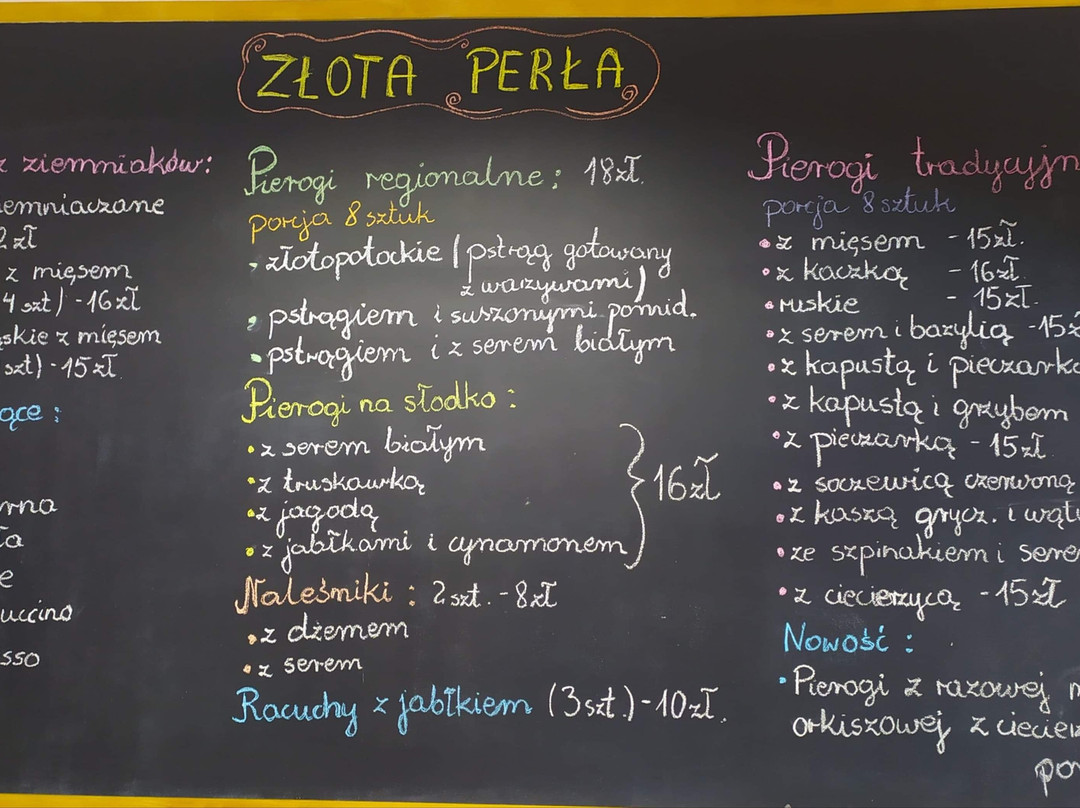 ZŁOTA PERŁA
z ziemniaków:
emniaczane
2 zł
z mięsem
4 szt) - 16 zł
skie z mięsem
szt) - 15 zł
ące:
rna
ła
e
uccino
sso
Pierogi regionalne: 18 zł.
porcja 8 sztuk
- złotopotockie (pstrąg gotowany
z warzywami)
• pstrągiem i suszonymi pomid.
• pstrągiem i z serem białym
Pierogi na słodko:
• z serem białym
• z truskawką
• z jagodą
• z jabłkami i cynamonem
16 zł
Naleśniki: 2 szt. - 8 zł
• z dżemem
• z serem
Racuchy z jabłkiem (3 szt.) - 10 zł.
Pierogi tradycyjn
porcja 8 sztuk
• z mięsem - 15 zł.
• z kaczką - 16 zł.
• ruskie - 15 zł.
• z serem i bazylią - 15 z
• z kapustą i pieczarka
• z kapustą i grzybem
• z pieczarką - 15 zł
• z soczewicą czerwoną
• z kaszą grycz. i wątr
• ze szpinakiem i sere
• z ciecierzycą - 15 zł
Nowość:
• Pierogi z razowej m
orkiszowej z ciecier
po